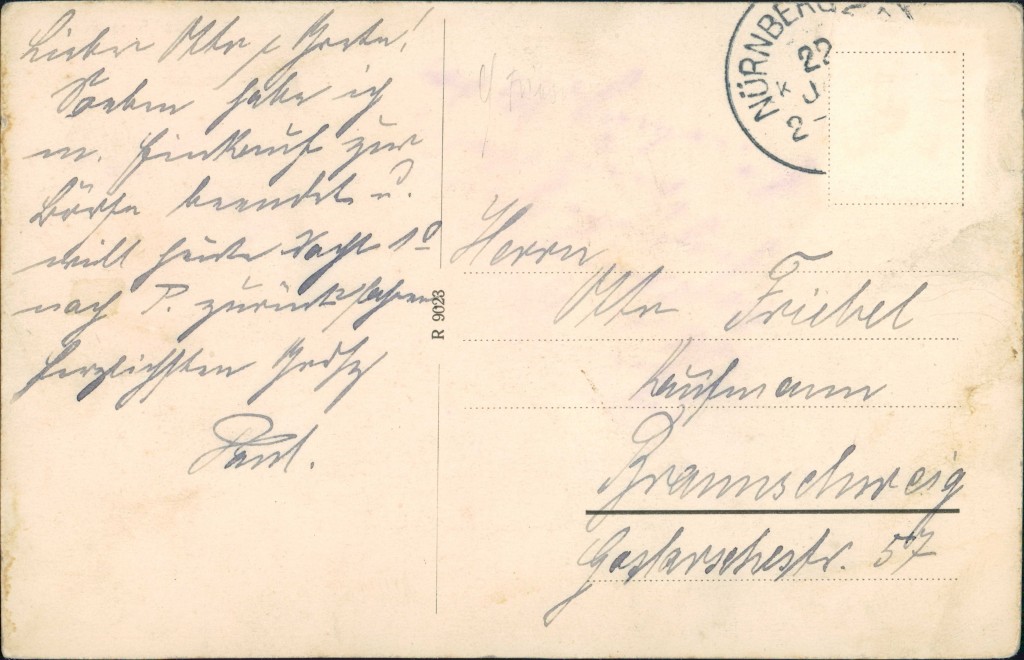 Lieber Otto, Grete!
Soeben habe ich
m. Einkauf zur
Börse beendet u.
will heute Nacht 1⁰
nach P. zurückfahren
Herzlichsten Gruß
Paul.
R 9023
NÜRNBERG 2
22
J
Herrn
Otto Friebel
Kaufmann
Braunschweig
Goslarschestr. 57